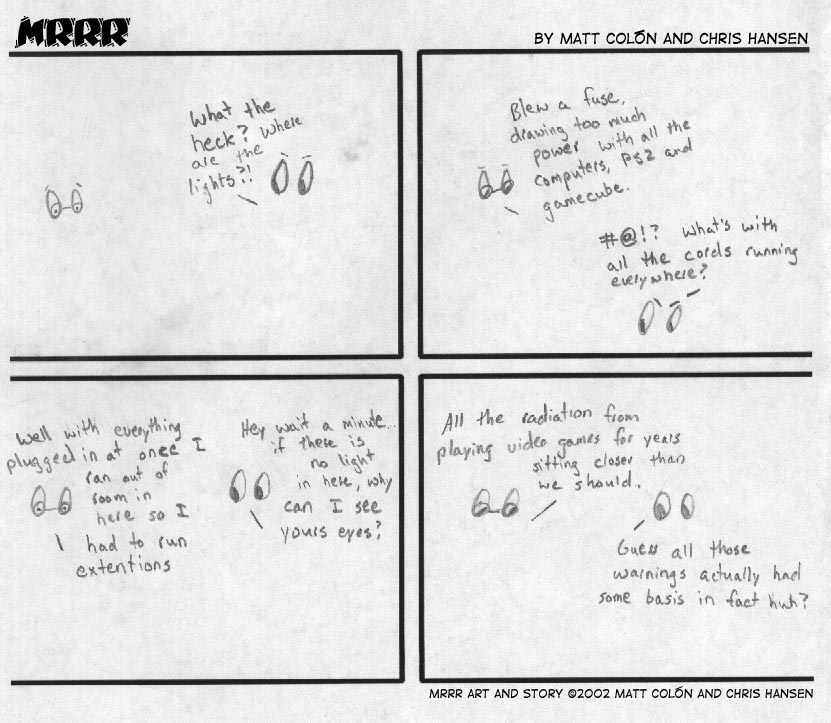 MRRR
BY MATT COLÓN AND CHRIS HANSEN
What the
heck? Where
are the
lights?!
Blew a fuse,
drawing too much
power with all the
computers, PS2 and
gamecube.
#@!? What's with
all the cords running
everywhere?
Well with everything
plugged in at once I
ran out of
room in
here so I
had to run
extentions
Hey wait a minute..
if there is
no light
in here, why
can I see
yours eyes?
All the radiation from
playing video games for years
sitting closer than
we should.
Guess all those
warnings actually had
some basis in fact huh?
MRRR ART AND STORY ©2002 MATT COLÓN AND CHRIS HANSEN